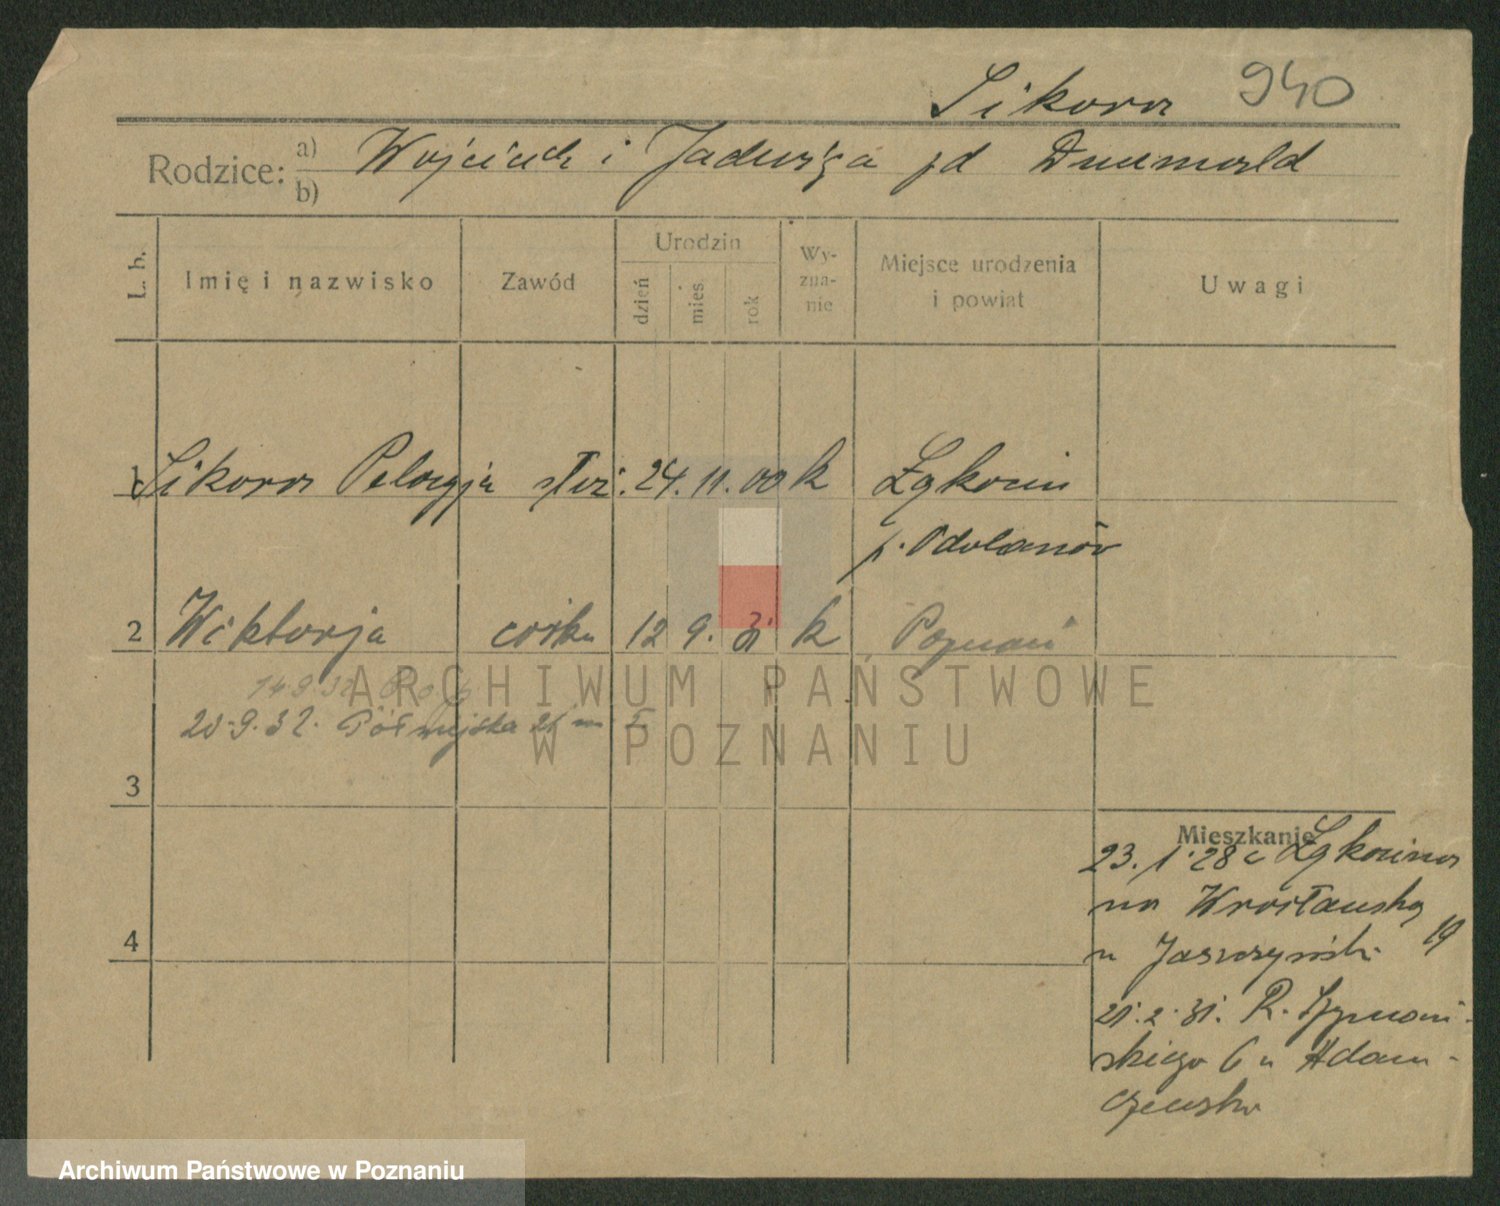 Sikora 940
Rodzice: a) b) Wojciech i Jadwiga
L. b.
Imię i nazwisko
Zawód
Urodzin
dzień
mies.
rok
Wy-
zna-
nie
Miejsce urodzenia
i powiat
Uwagi
1 Sikora Pelagja służ. 24. 11. 00 k
p. Odolanów
2 Wiktorja córka 12 9. 31 k Poznań
14 9 32
20.9.32. Półwiejska
ARCHIWUM PAŃSTWOWE
W POZNANIU
3
Mieszkanie
23. 1. 28 z
na Wrocławską 19
4
u
21. 2. 31. R. Szymań-
skiego 6 u Adam-
czewska
Archiwum Państwowe w Poznaniu